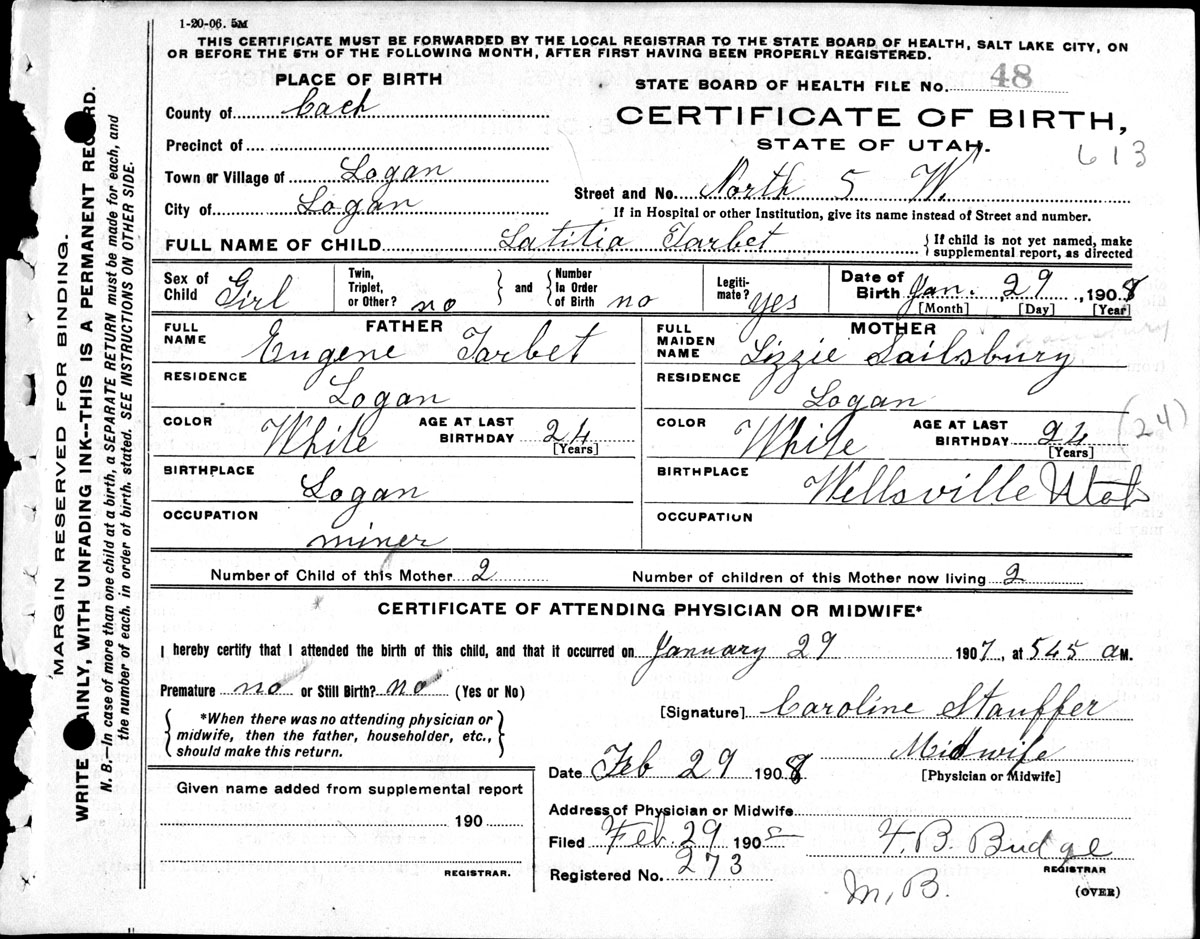 1-20-06. 5M
THIS CERTIFICATE MUST BE FORWARDED BY THE LOCAL REGISTRAR TO THE STATE BOARD OF HEALTH, SALT LAKE CITY, ON
OR BEFORE THE 5TH OF THE FOLLOWING MONTH, AFTER FIRST HAVING BEEN PROPERLY REGISTERED.
PLACE OF BIRTH
STATE BOARD OF HEALTH FILE No. 48
County of Cach
CERTIFICATE OF BIRTH,
STATE OF UTAH.
613
Precinct of
Town or Village of Logan
Street and No. North 5 W.
City of Logan
If in Hospital or other Institution, give its name instead of Street and number.
FULL NAME OF CHILD Latitia Tarbet
{If child is not yet named, make
supplemental report, as directed
Sex of Child Girl
Twin, Triplet, or Other? no
} and {
Number In Order of Birth no
Legiti-mate? yes
Date of Birth Jan. 29, 1908
[Month] [Day] [Year]
FATHER
FULL NAME Eugene Tarbet
MOTHER
FULL MAIDEN NAME Lizzie Sailsbury
RESIDENCE Logan
RESIDENCE Logan
COLOR White
AGE AT LAST BIRTHDAY 24
[Years]
COLOR White
AGE AT LAST BIRTHDAY 24
[Years]
(24)
BIRTHPLACE Logan
BIRTHPLACE Wellsville Utah
OCCUPATION miner
OCCUPATION
Number of Child of this Mother 2
Number of children of this Mother now living 2
CERTIFICATE OF ATTENDING PHYSICIAN OR MIDWIFE*
I hereby certify that I attended the birth of this child, and that it occurred on January 29 1907, at 545 a M.
Premature no or Still Birth? no (Yes or No)
{*When there was no attending physician or
midwife, then the father, householder, etc.,
should make this return.}
[Signature] Caroline Stauffer
Midwife
[Physician or Midwife]
Date Feb 29 1908
Given name added from supplemental report
190
REGISTRAR.
Address of Physician or Midwife
Filed Feb. 29 190
F. B. Budge
REGISTRAR
Registered No. 273
M. B.
(OVER)
MARGIN RESERVED FOR BINDING.
WRITE AINLY, WITH UNFADING INK--THIS IS A PERMANENT REC RD.
N. B.—In case of more than one child at a birth, a SEPARATE RETURN must be made for each, and
the number of each, in order of birth, stated. SEE INSTRUCTIONS ON OTHER SIDE.